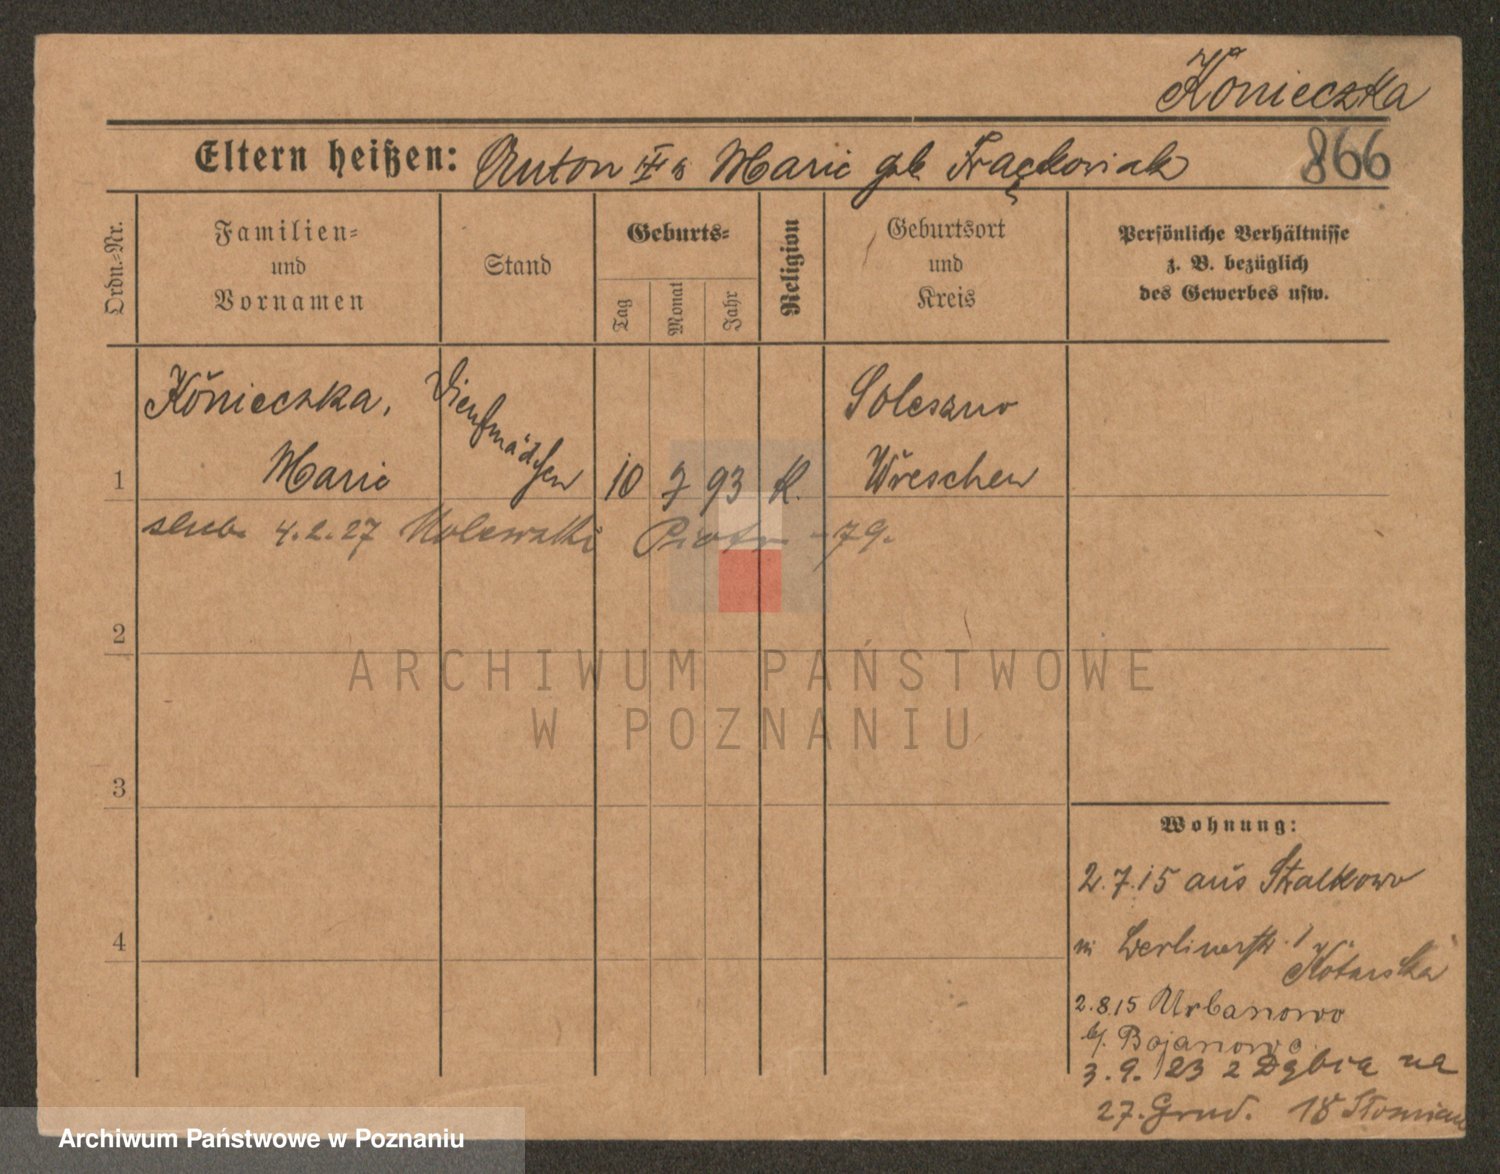 Konieczka
Eltern heißen: Anton u. Marie geb. Frąckowiak 866
Ordn.-Nr. Familien- und Vornamen
Stand
Geburts- Tag Monat Jahr
Religion
Geburtsort und Kreis
Persönliche Verhältnisse
z. B. bezüglich
des Gewerbes usw.
Konieczka, Dienstmädchen Soleszno
1 Marie 10 7 93 K. Wreschen
ślub 4.2.27 Piotr 79.
2
ARCHIWUM PAŃSTWOWE
W POZNANIU
3
Wohnung:
2.7.15 aus Stralkowo
4
n Berlinerstr. 1
Kotarska
2.8.15 Urbanowo
b/. Bojanowo
3.9.23 z Dębia na
27. Grud. 18
Archiwum Państwowe w Poznaniu